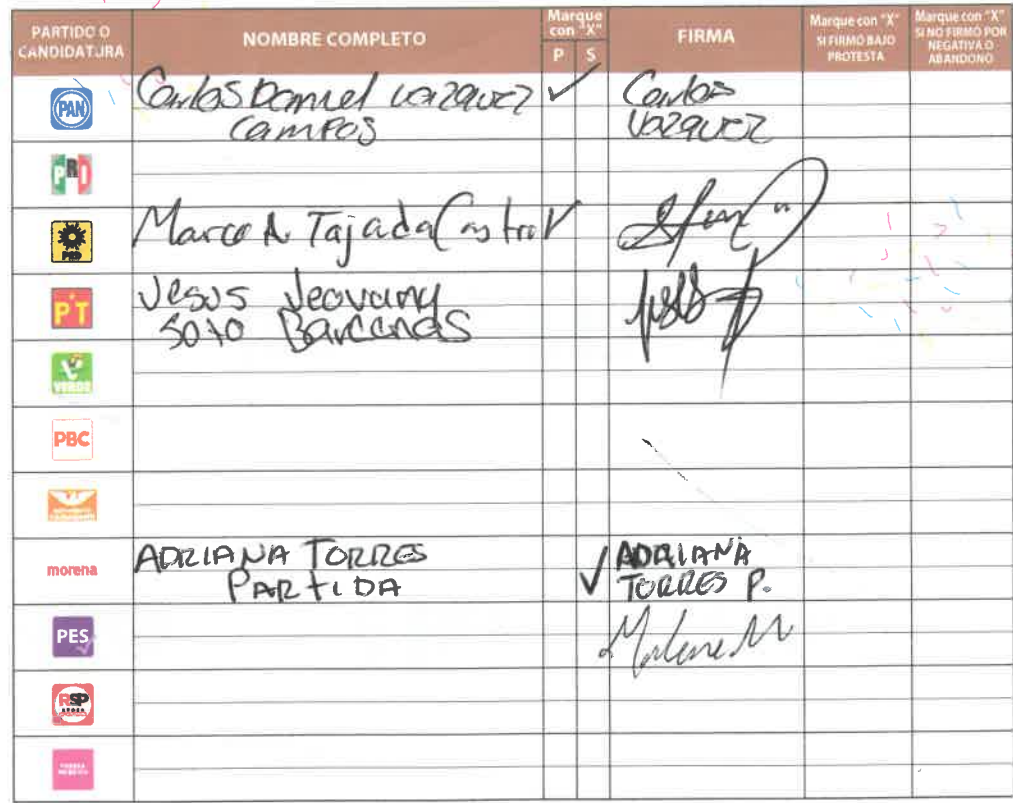 PARTIDO O CANDIDATURA
NOMBRE COMPLETO
Marque con "X"
P S
FIRMA
Marque con "X" SI FIRMÓ BAJO PROTESTA
Marque con "X" SI NO FIRMÓ POR NEGATIVA O ABANDONO
PAN
Carlos Daniel Vazquez Campos
Carlos Vazquez
PRI
PRD
Marco A Tajada Castro
PT
Jesus Jeovany Soto Barcenas
VERDE
PBC
morena
ADRIANA TORRES PARTIDA
ADRIANA TORRES P.
PES
Marlene M
RSP